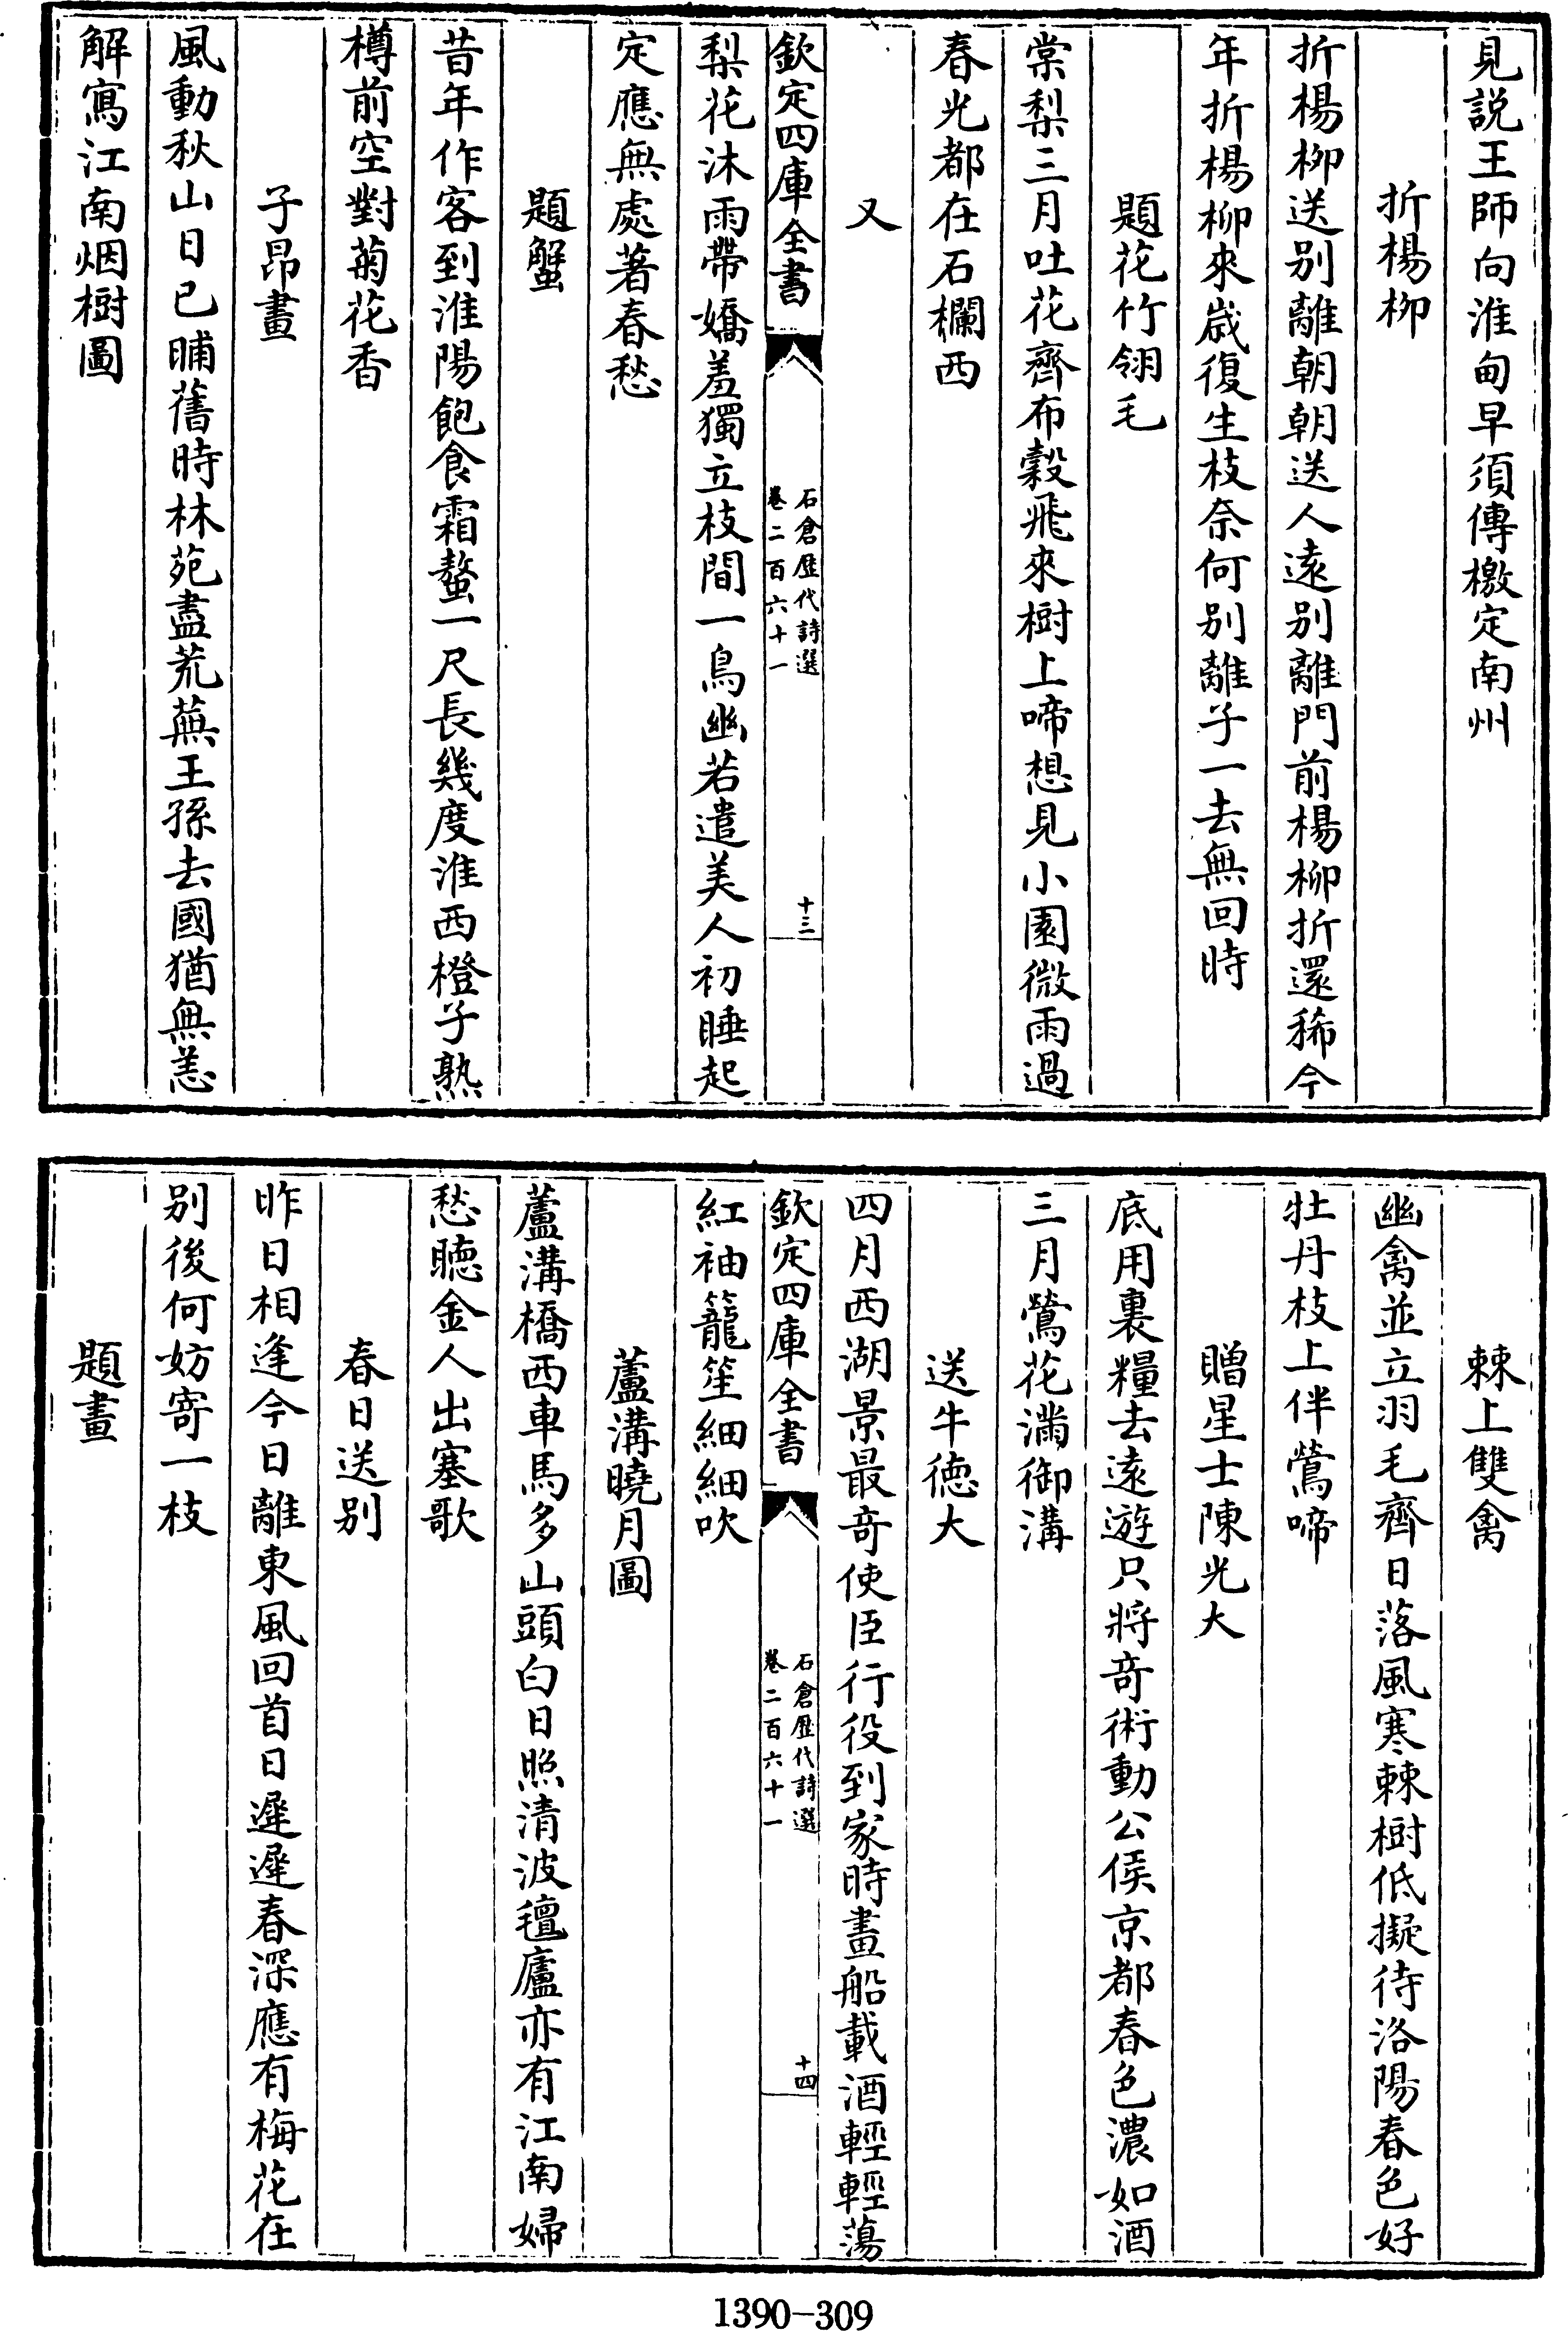 見説王師向淮甸早須傳檄定南州
折楊柳
折楊柳送别離朝朝送人遠别離門前楊柳折還稀今
年折楊柳來歲復生枝奈何别離子一去無回時
題花竹翎毛
棠梨三月吐花齊布穀飛來樹上啼想見小園微雨過
春光都在石欄西
又
欽定四庫全書
石倉歴代詩選
卷二百六十一
十三
梨花沐雨帶嬌羞獨立枝間一鳥幽若遣美人初睡起
定應無處著春愁
題蟹
昔年作客到淮陽飽食霜螯一尺長幾度淮西橙子熟
樽前空對菊花香
子昂畫
風動秋山日已晡舊時林苑盡荒蕪王孫去國猶無恙
解寫江南烟樹圖
棘上雙禽
幽禽並立羽毛齊日落風寒棘樹低擬待洛陽春色好
牡丹枝上伴鶯啼
贈星士陳光大
底用裹糧去遠遊只將奇術動公侯京都春色濃如酒
三月鶯花滿御溝
送牛徳大
四月西湖景最奇使臣行役到家時畫船載酒輕輕蕩
欽定四庫全書
石倉歴代詩選
卷二百六十一
十四
紅袖籠笙細細吹
蘆溝曉月圖
蘆溝橋西車馬多山頭白日照清波氊廬亦有江南婦
愁聴金人出塞歌
春日送别
昨日相逢今日離東風回首日遲遲春深應有梅花在
别後何妨寄一枝
題畫
1390-309